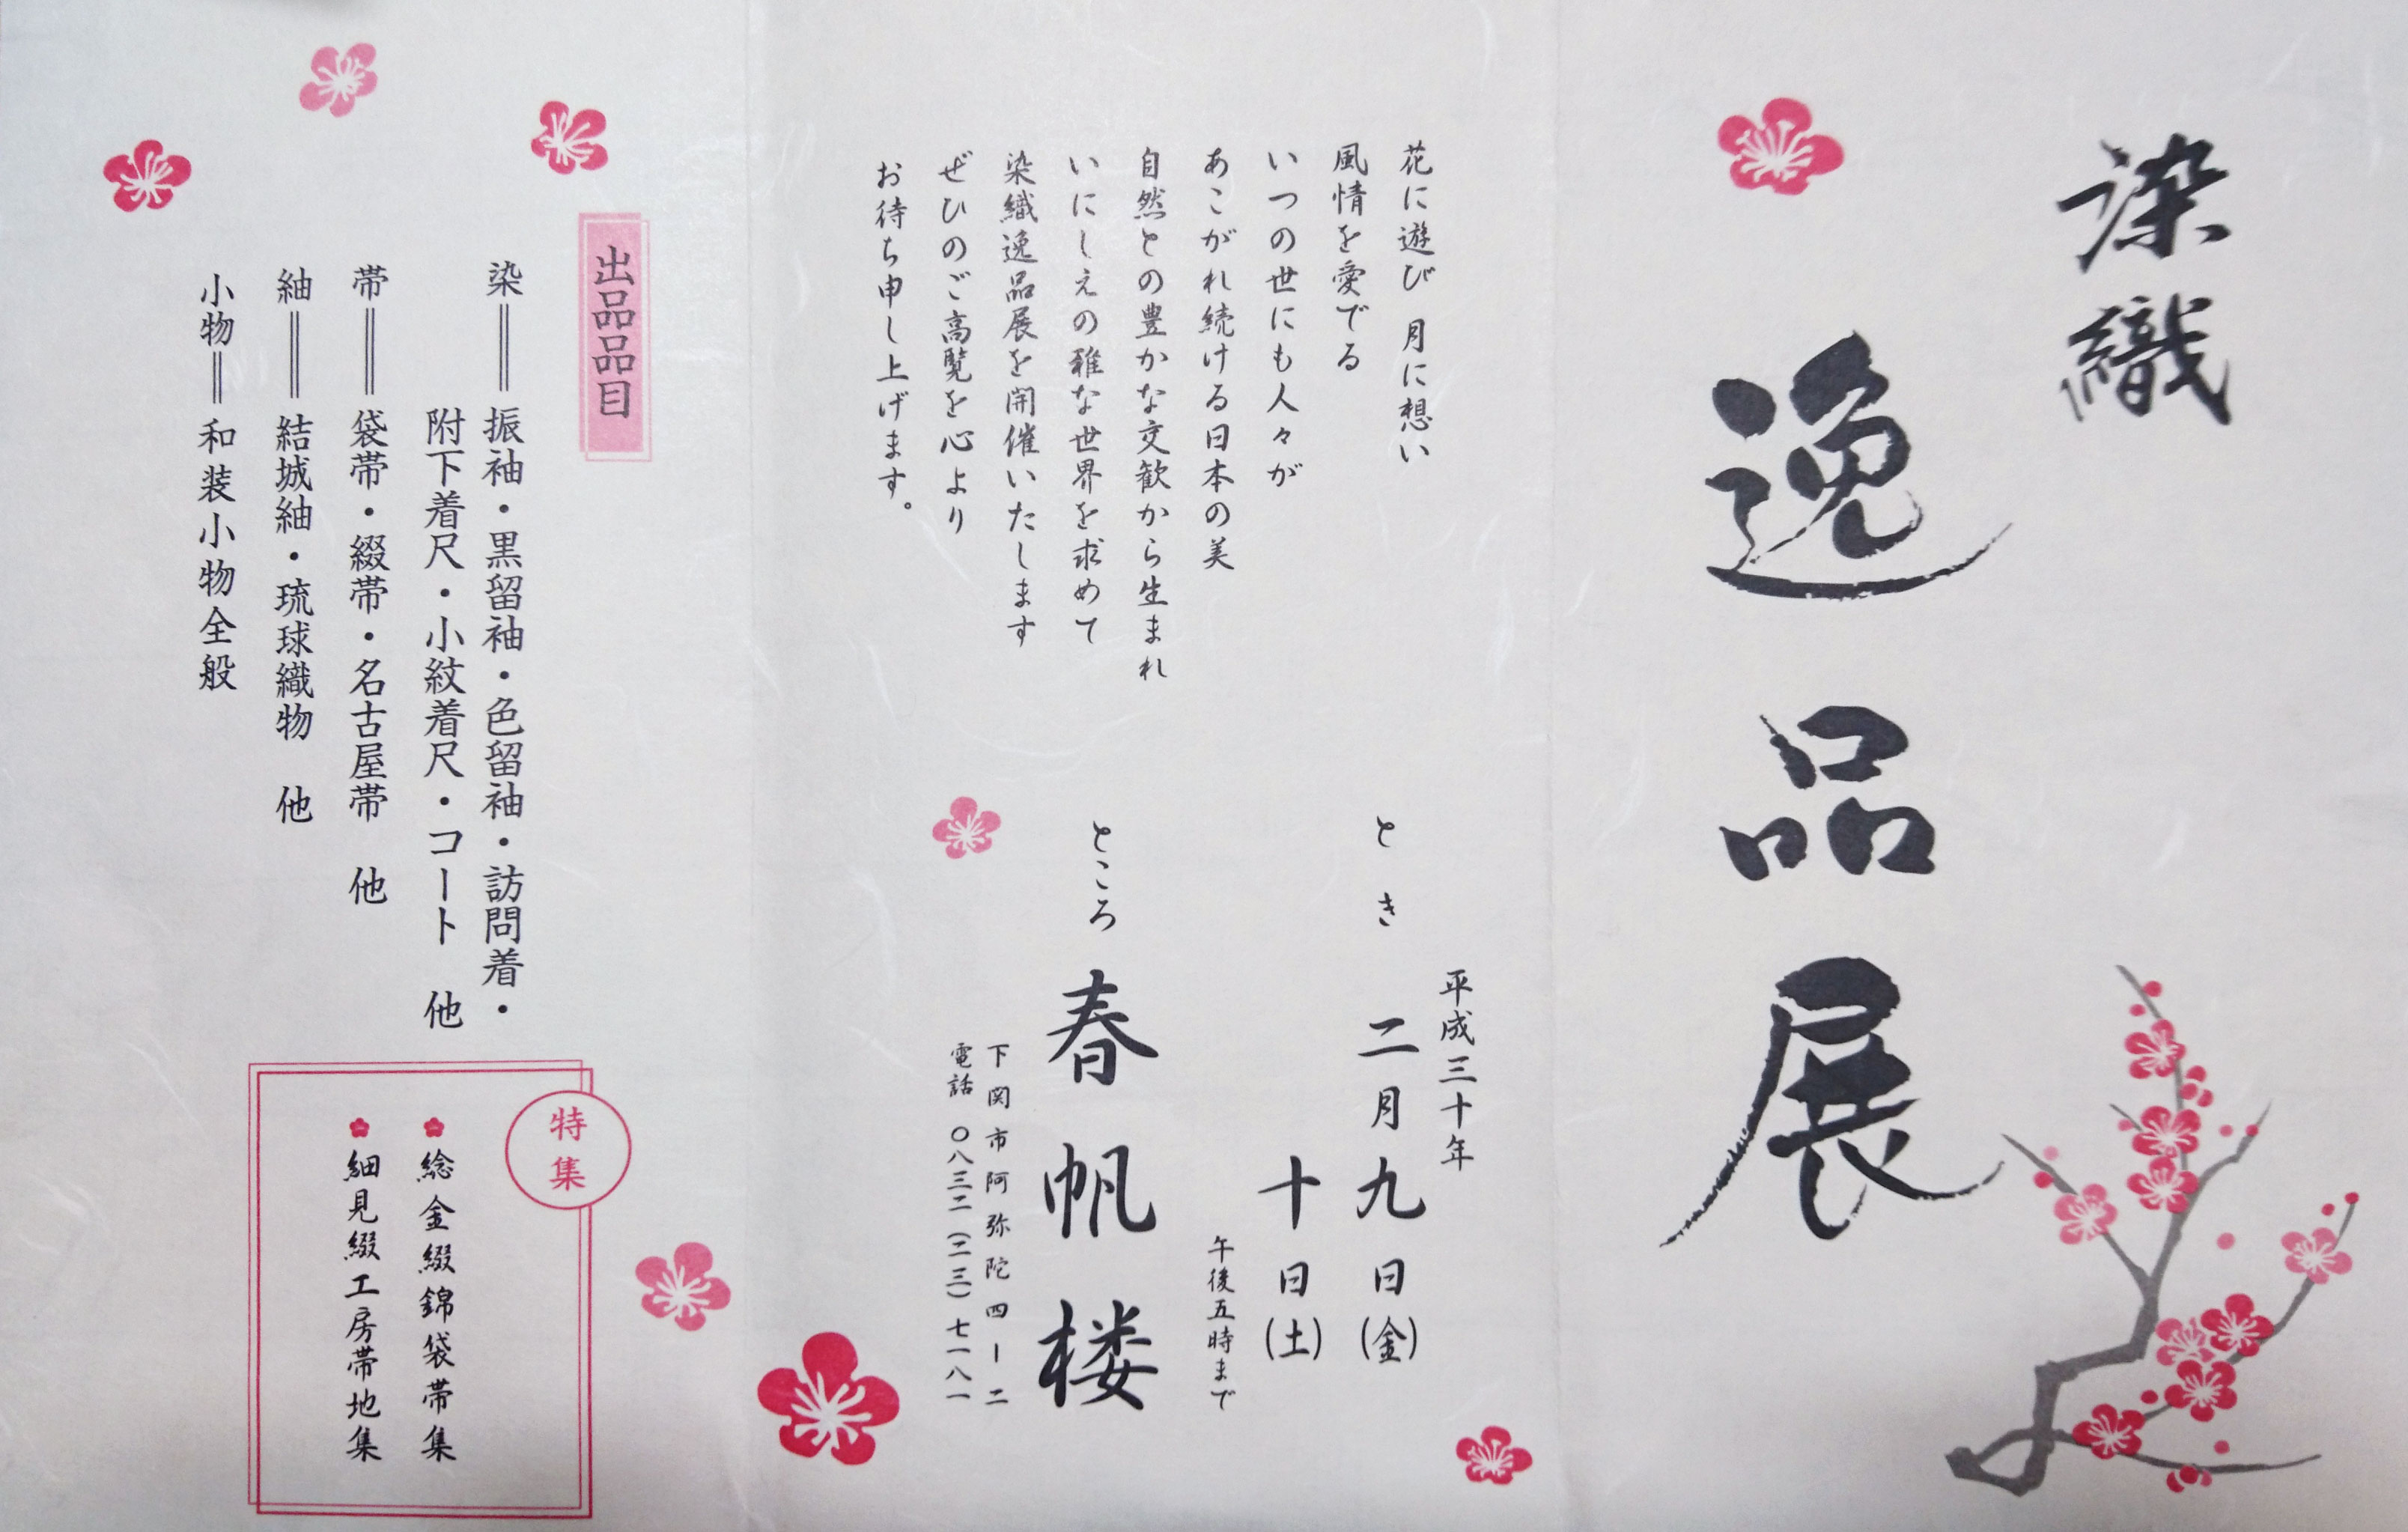 染織
逸品展
花に遊び 月に想い
風情を愛でる
いつの世にも人々が
あこがれ続ける日本の美
自然との豊かな交歓から生まれ
いにしえの雅な世界を求めて
染織逸品展を開催いたします
ぜひのご高覧を心より
お待ち申し上げます。
とき
平成三十年
二月九日(金)
十日(土)
午後五時まで
ところ
春帆楼
下関市阿弥陀四ー二
電話 〇八三二(二三)七一八一
出品品目
染＝振袖・黒留袖・色留袖・訪問着・
附下着尺・小紋着尺・コート 他
帯＝袋帯・綴帯・名古屋帯 他
紬＝結城紬・琉球織物 他
小物＝和装小物全般
特集
総金綴錦袋帯集
細見綴工房帯地集